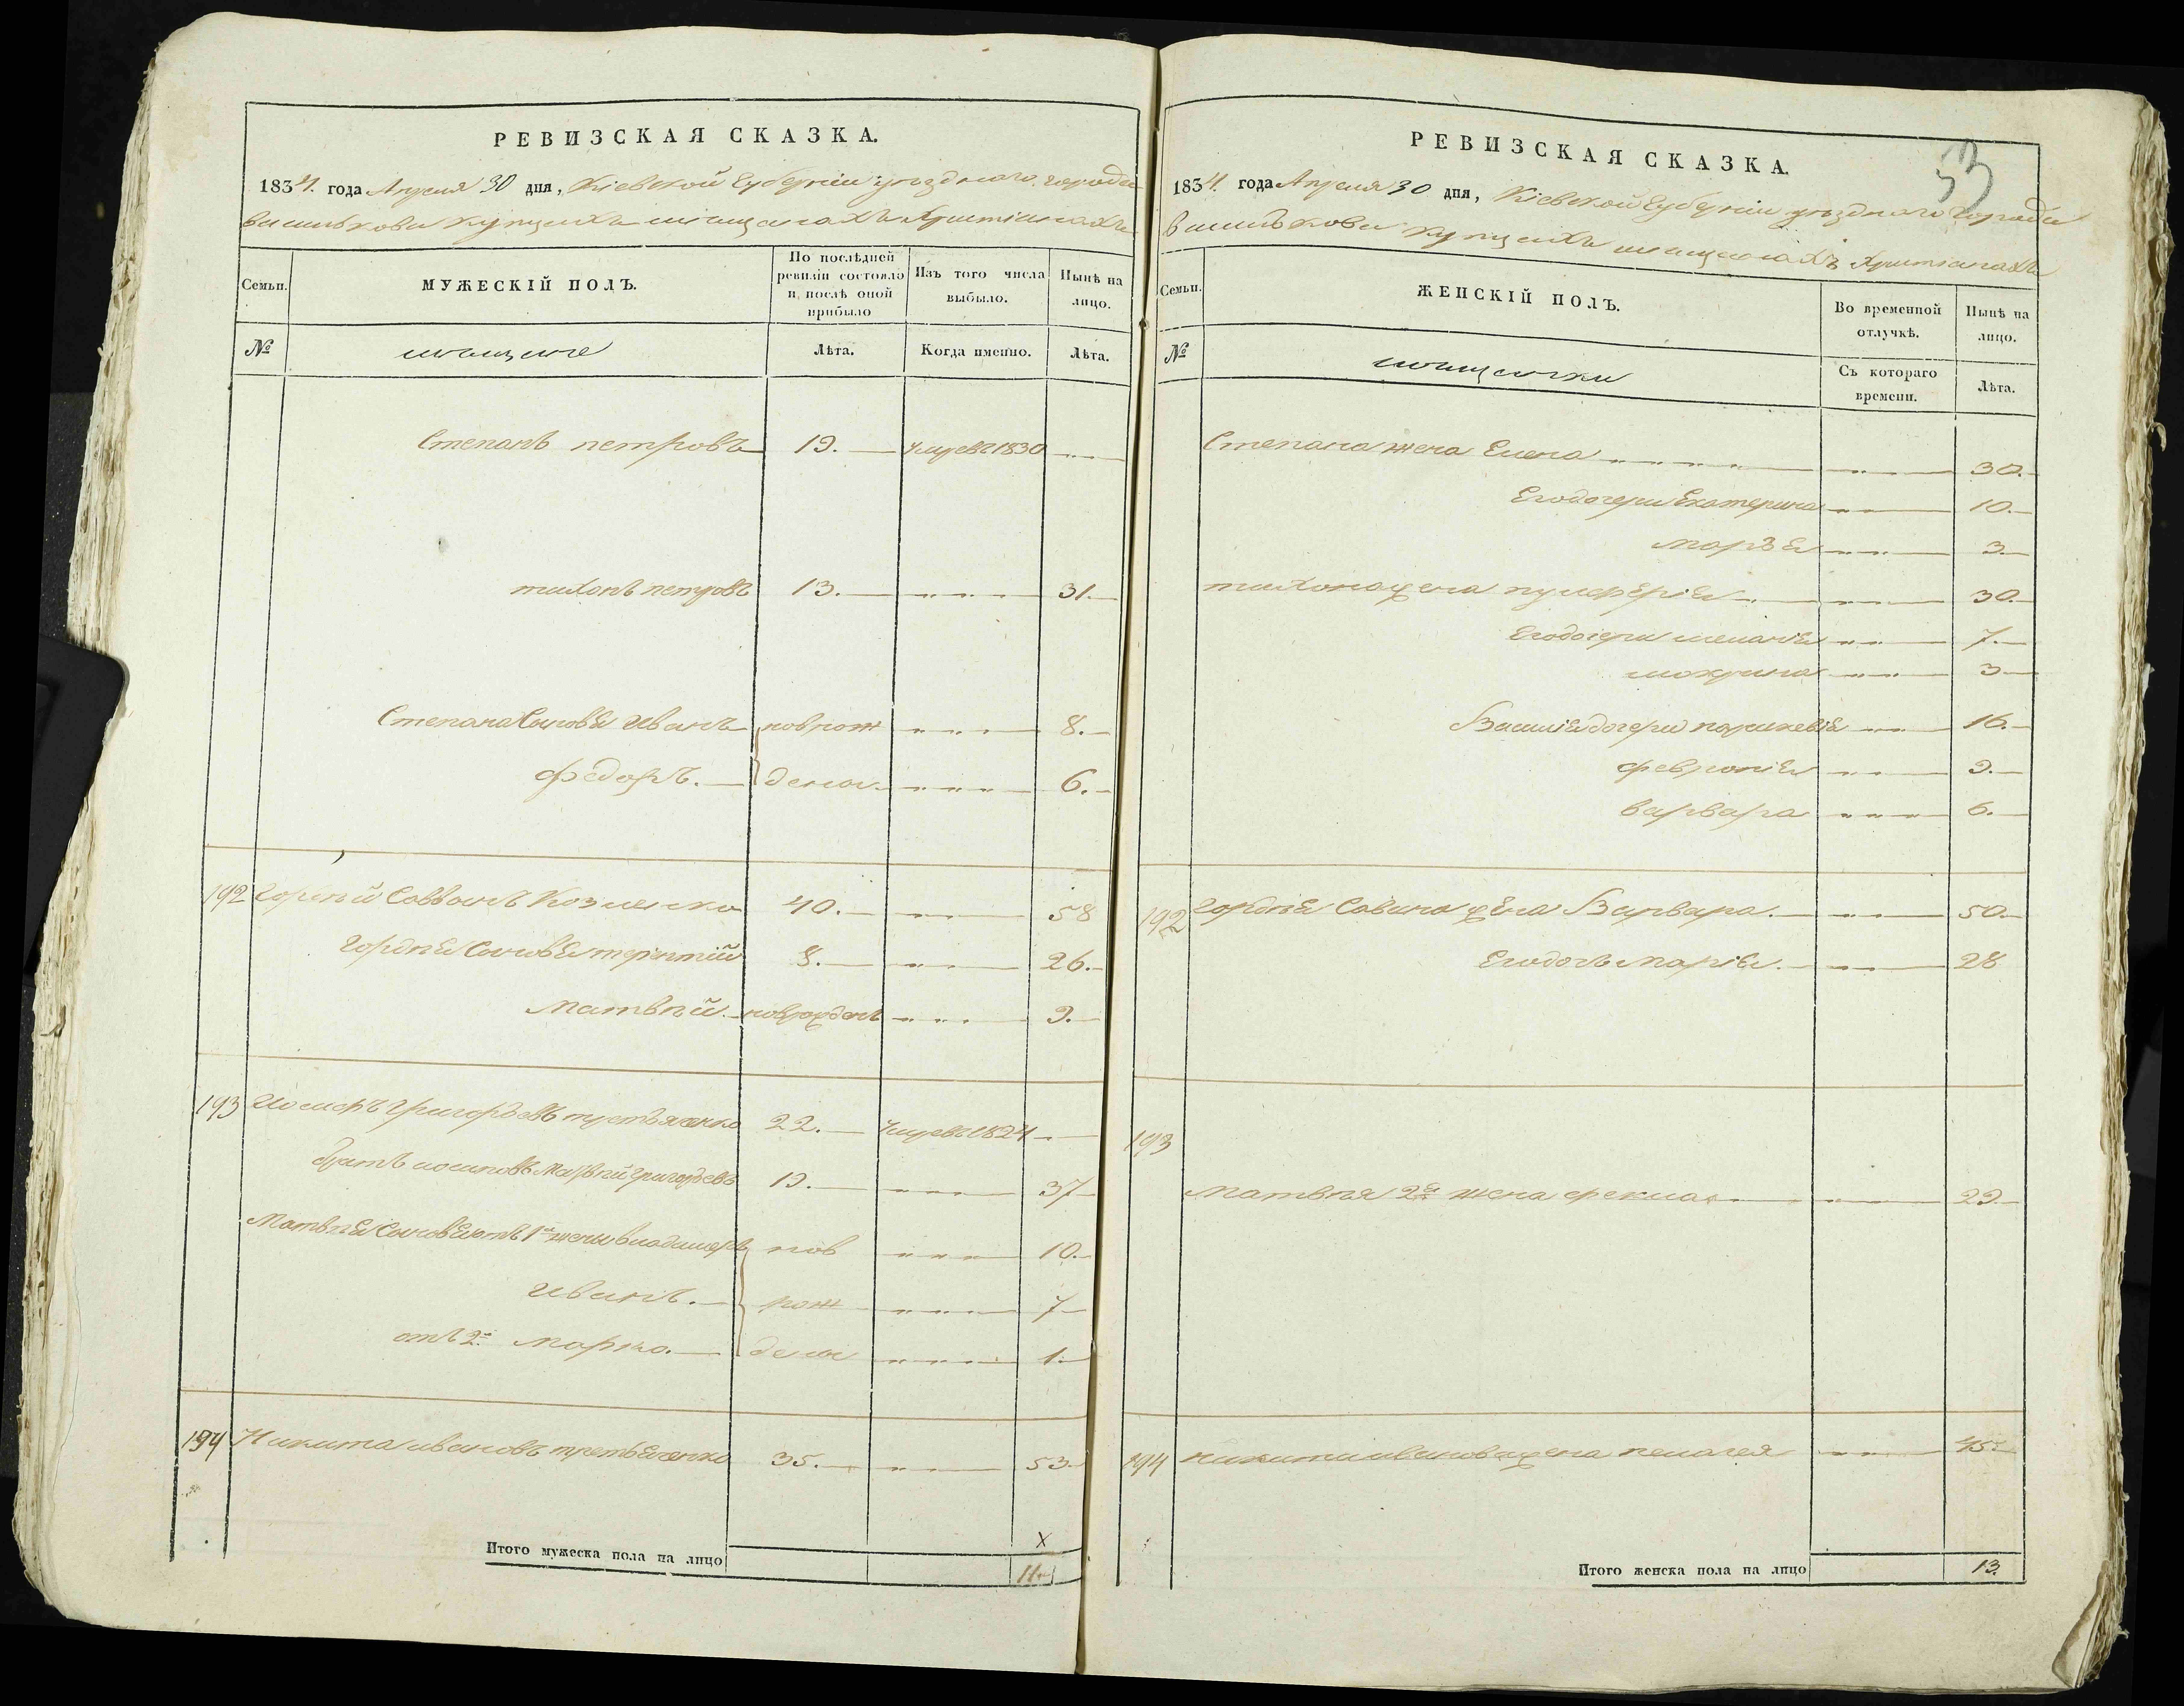 РЕВИЗСКАЯ СКАЗКА.
1834. года Апреля 30 дня, Кіевской Губерніи уѣзднаго города
Василькова Купцахъ мѣщанахъ Христіанахъ
Семьи.
МУЖЕСКІЙ ПОЛЪ.
По послѣдней ревизіи состояло и послѣ оной прибыло
Изъ того числа выбыло.
Нынѣ на лицо.
№
мѣщане
Лѣта.
Когда именно.
Лѣта.
Степанъ петровъ 19. умре въ 1830
тихонъ петровъ 13. 31.
Степана Сыновья Иванъ новрож 8.
федоръ. дены. 6.
192 Гордѣй Саввинъ Козленко 40. 58
Гордѣя Сыновья терентій 8. 26.
Матвѣй. новрожденъ 9.
193 Иосифъ Григорьевъ пустьяченко 22. Умре въ 1824
братъ иосиповъ Матвѣй Григорьевъ 19. 37
Матвѣя Сыновья отъ 1й жены владимеръ нов 10.
Иванъ. рож 7
отъ 2й Марко. дены 1.
194 Никита ивановъ третьяченко 35. 53
Итого мужеска пола на лицо 11
53
РЕВИЗСКАЯ СКАЗКА.
1834. года Апреля 30 дня, Кіевской Губерніи уѣзднаго города
Василькова Купцахъ мѣщанахъ Христіанахъ
Семьи.
ЖЕНСКІЙ ПОЛЪ.
Во временной отлучкѣ.
Нынѣ на лицо.
№
мѣщанки
Съ котораго времени.
Лѣта.
Степана жена Елена 30.
Его дочери Екатерина 10.
марья 3.
тихона жена пулхерія 30.
Его дочери меланія 7.
мокрина 3
Василія дочери параскевія 16.
февронія 9.
варвара 6.
192 Гордѣя Савина жена Варвара. 50.
Его дочь марія. 28
193
Матвѣя 2я жена фекла 29.
194 никиты иванова жена пелагея 45
Итого женска пола на лицо 13.